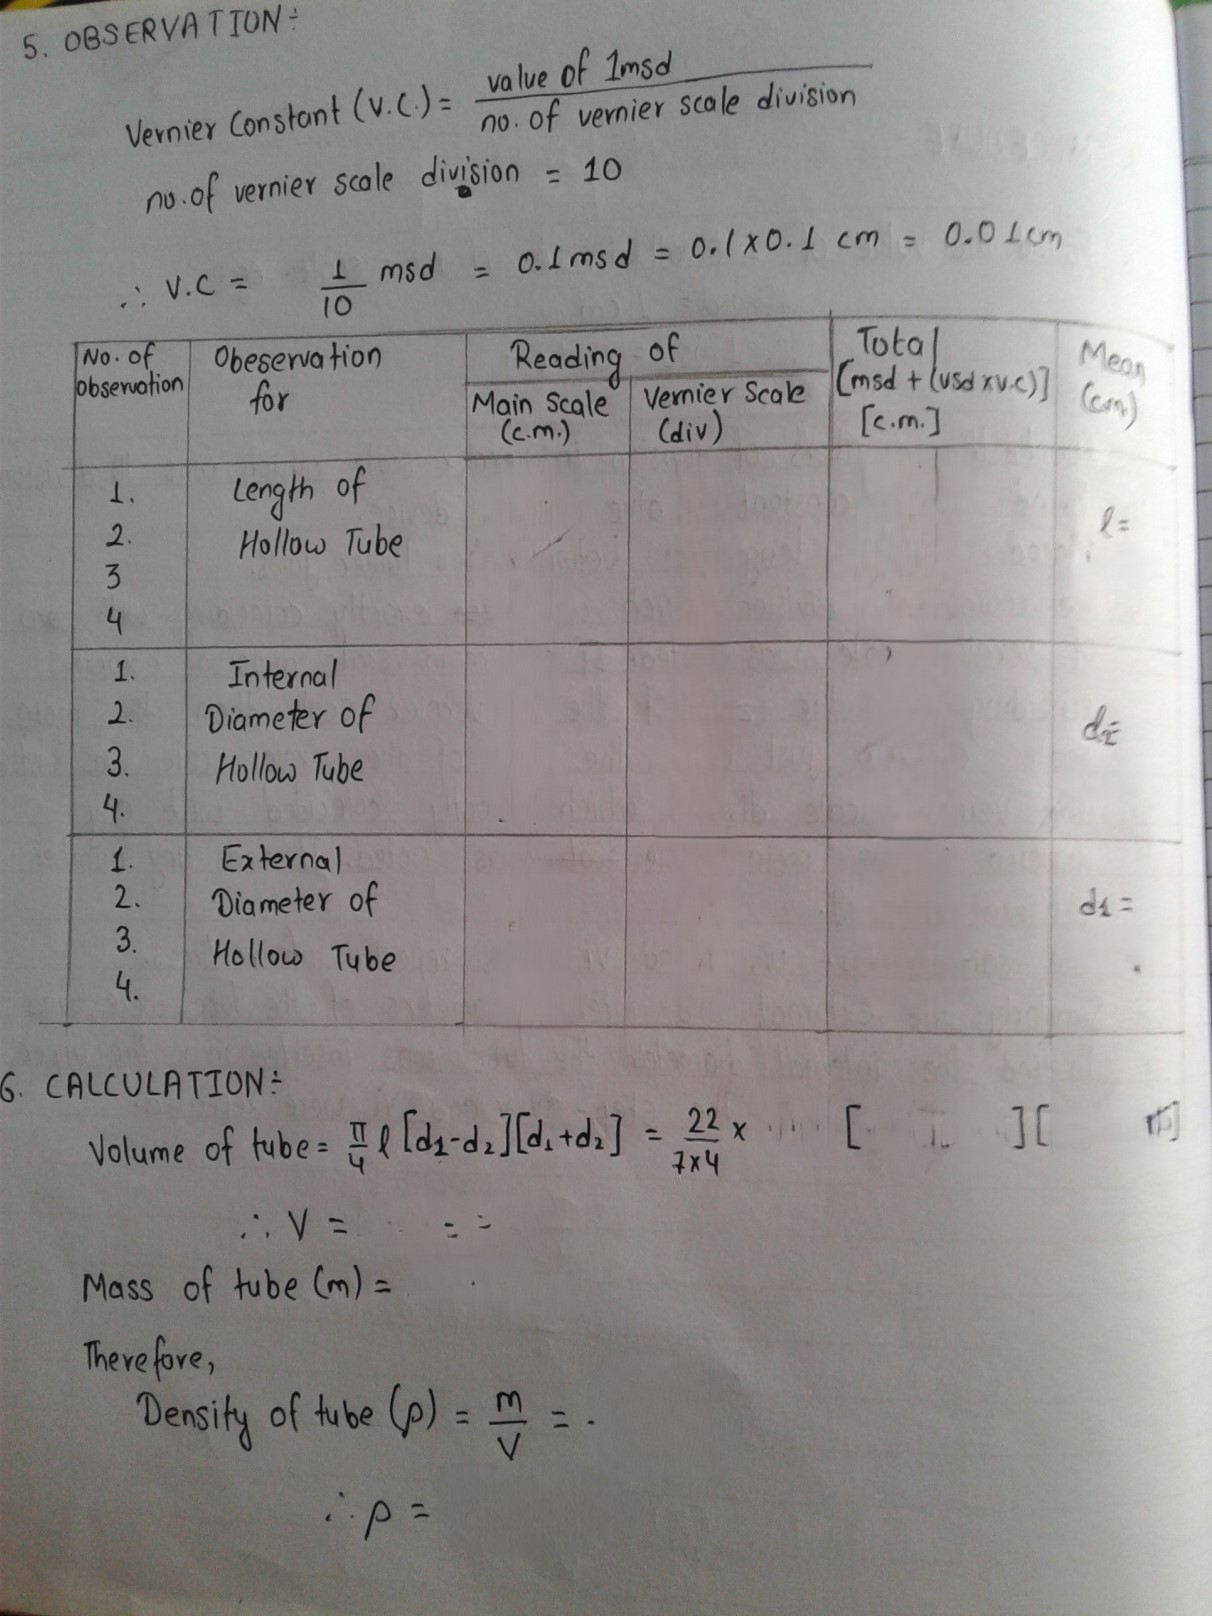 5. OBSERVATION:-
Vernier Constant (V.C.) = value of 1msd / no. of vernier scale division
no. of vernier scale division = 10
∴ V.C = 1/10 msd = 0.1msd = 0.1 x 0.1 cm = 0.01cm
No. of observation | Obeservation for | Reading of | Total [msd + (vsd x v.c)] [c.m.] | Mean (cm)
Main Scale (c.m.) | Vernier Scale (div)
1. Length of
2. Hollow Tube l =
3
4
1. Internal
2. Diameter of
3. Hollow Tube
4.
1. External
2. Diameter of d1 =
3. Hollow Tube
4.
6. CALCULATION:-
Volume of tube = π/4 l [d1-d2][d1+d2] = 22/7x4 x .... [ ][ ]
∴ V = = =
Mass of tube (m) =
Therefore,
Density of tube (ρ) = m/V = .
∴ ρ =